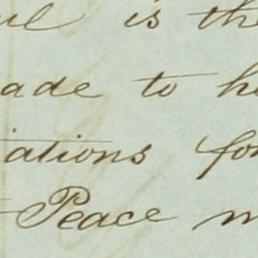 is the
ade to h
ations for
Peace